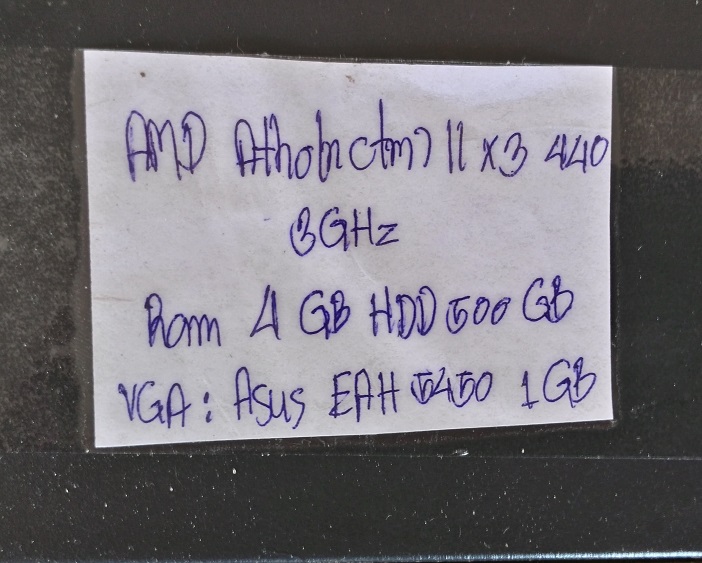 AMD Atholn(tm) II x3 440
3GHz
Ram 4 GB HDD 500 GB
VGA: Asus EAH 5450 1GB